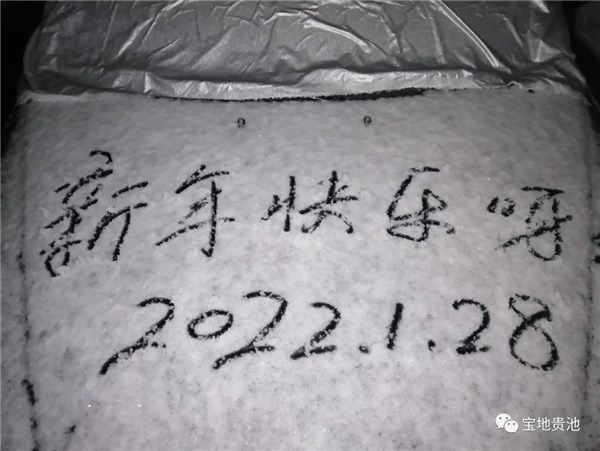 新年快乐呀
2022.1.28
宝地贵池